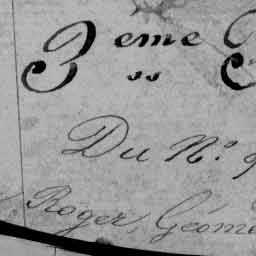 3 eme
Du N.o
Roger, Géom